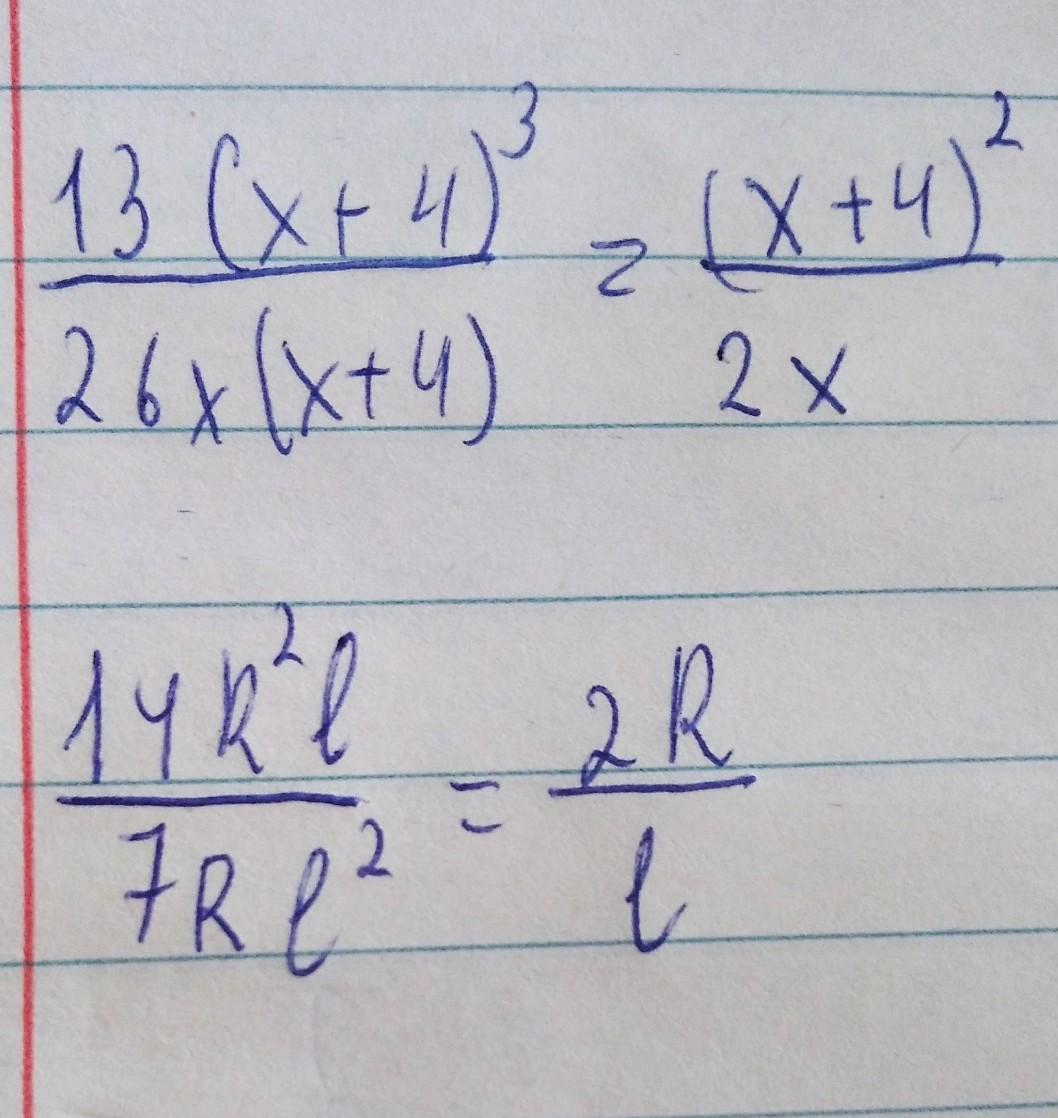 13(x+4)³/26x(x+4) = (x+4)²/2x
14R²l/7Rl² = 2R/l